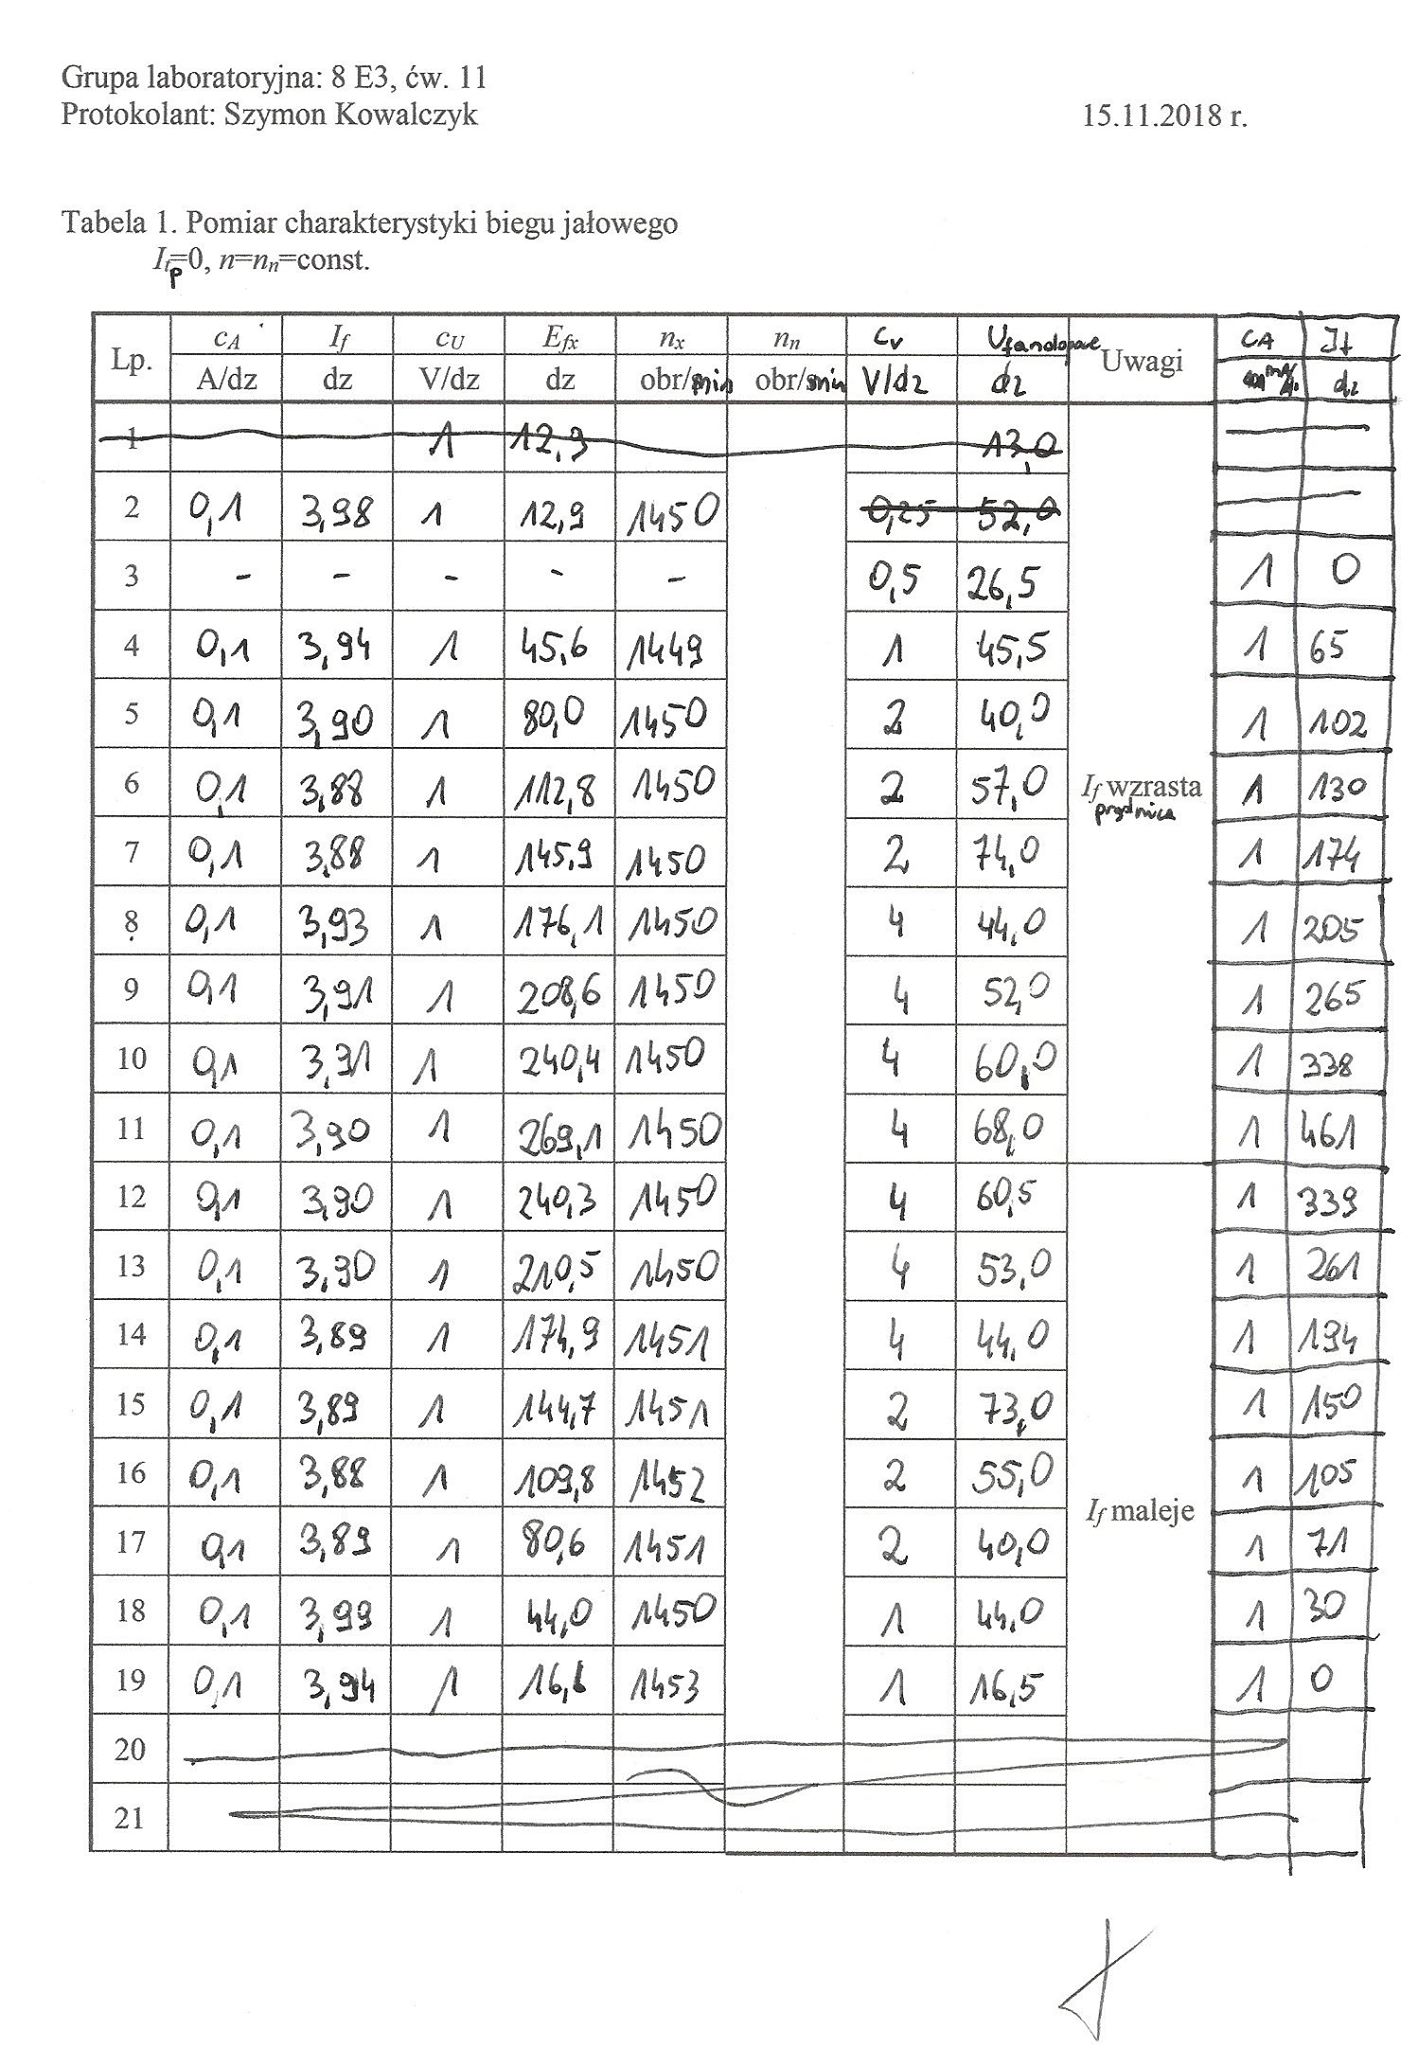 Grupa laboratoryjna: 8 E3, ćw. 11
Protokolant: Szymon Kowalczyk 15.11.2018 r.
Tabela 1. Pomiar charakterystyki biegu jałowego
Itp=0, n=nn=const.
Lp. cA If cU Efx nx nn Cv Utandopare Uwagi CA If
A/dz dz V/dz dz obr/min obr/min V/dz dz mA/dz dz
1 1 12,3 13,0
2 0,1 3,98 1 12,9 1450 0,25 52,0
3 - - - - - 0,5 26,5 1 0
4 0,1 3,94 1 45,6 1449 1 45,5 1 65
5 0,1 3,90 1 80,0 1450 2 40,0 1 102
6 0,1 3,88 1 112,8 1450 2 57,0 If wzrasta 1 130
prądnica
7 0,1 3,88 1 145,9 1450 2 74,0 1 174
8 0,1 3,93 1 176,1 1450 4 44,0 1 205
9 0,1 3,91 1 208,6 1450 4 52,0 1 265
10 0,1 3,91 1 240,4 1450 4 60,0 1 338
11 0,1 3,90 1 269,1 1450 4 68,0 1 461
12 0,1 3,90 1 240,3 1450 4 60,5 1 339
13 0,1 3,90 1 210,5 1450 4 53,0 1 261
14 0,1 3,89 1 174,9 1451 4 44,0 1 194
15 0,1 3,89 1 144,7 1451 2 73,0 1 150
16 0,1 3,88 1 109,8 1452 2 55,0 1 105
17 0,1 3,89 1 80,6 1451 2 40,0 If maleje 1 71
18 0,1 3,99 1 44,0 1450 1 44,0 1 30
19 0,1 3,94 1 16,6 1453 1 16,5 1 0
20
21